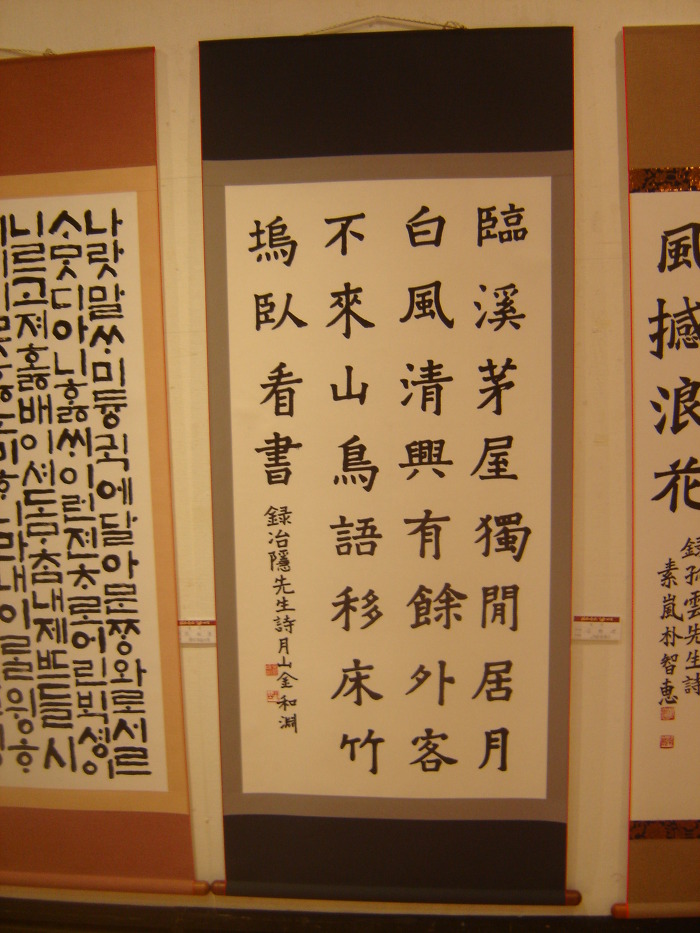 風撼浪花
録孤雲先生詩
素嵐朴智恵
臨溪茅屋獨閒居月
白風清興有餘外客
不來山鳥語移床竹
塢臥看書
録冶隱先生詩月山金和淵
나랏말ᄊᆞ미듕귁에달아문ᄍᆞᆼ와로서르
ᄉᆞᄆᆞᆺ디아니ᄒᆞᆯᄊᆡ이런젼ᄎᆞ로어린ᄇᆡᆨ셩이
니르고져호ᇙ배이셔도ᄆᆞᄎᆞᆷ내제ᄠᅳ들시